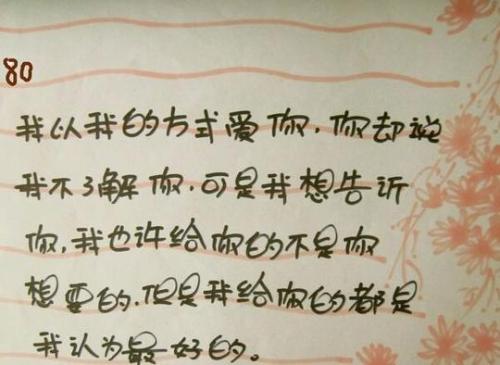 80
我以我的方式爱你，你却说
我不了解你，可是我想告诉
你，我也许给你的不是你
想要的，但是我给你的都是
我认为最好的。